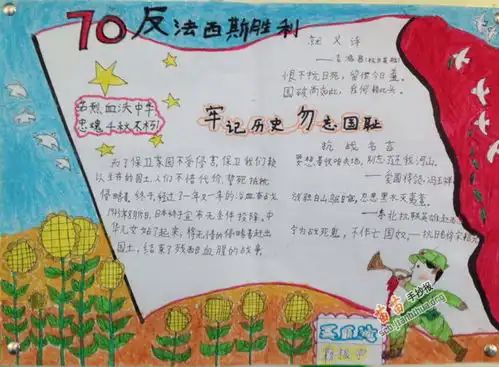 70反法西斯胜利
就义诗
恨不抗日死，留作今日羞。
国破尚如此，我何惜此头。
英烈血沃中华
忠魂千秋不朽
牢记历史 勿忘国耻
抗战名言
要想着收咱失场，别忘还我河山。
——爱国将领冯玉祥
为了保卫家园不受侵害保卫我们赖
以生存的国土，人们不惜代价，誓死抵抗
侵略者终于，经过了一年又一年的浴血奋战
1945年8月15日，日本终于宣布无条件投降，中
华儿女站了起来，将无情的侵略者赶出
国土，结束了残酷血腥的战争
宁为战死鬼，不作亡国奴——
苗苗手抄报